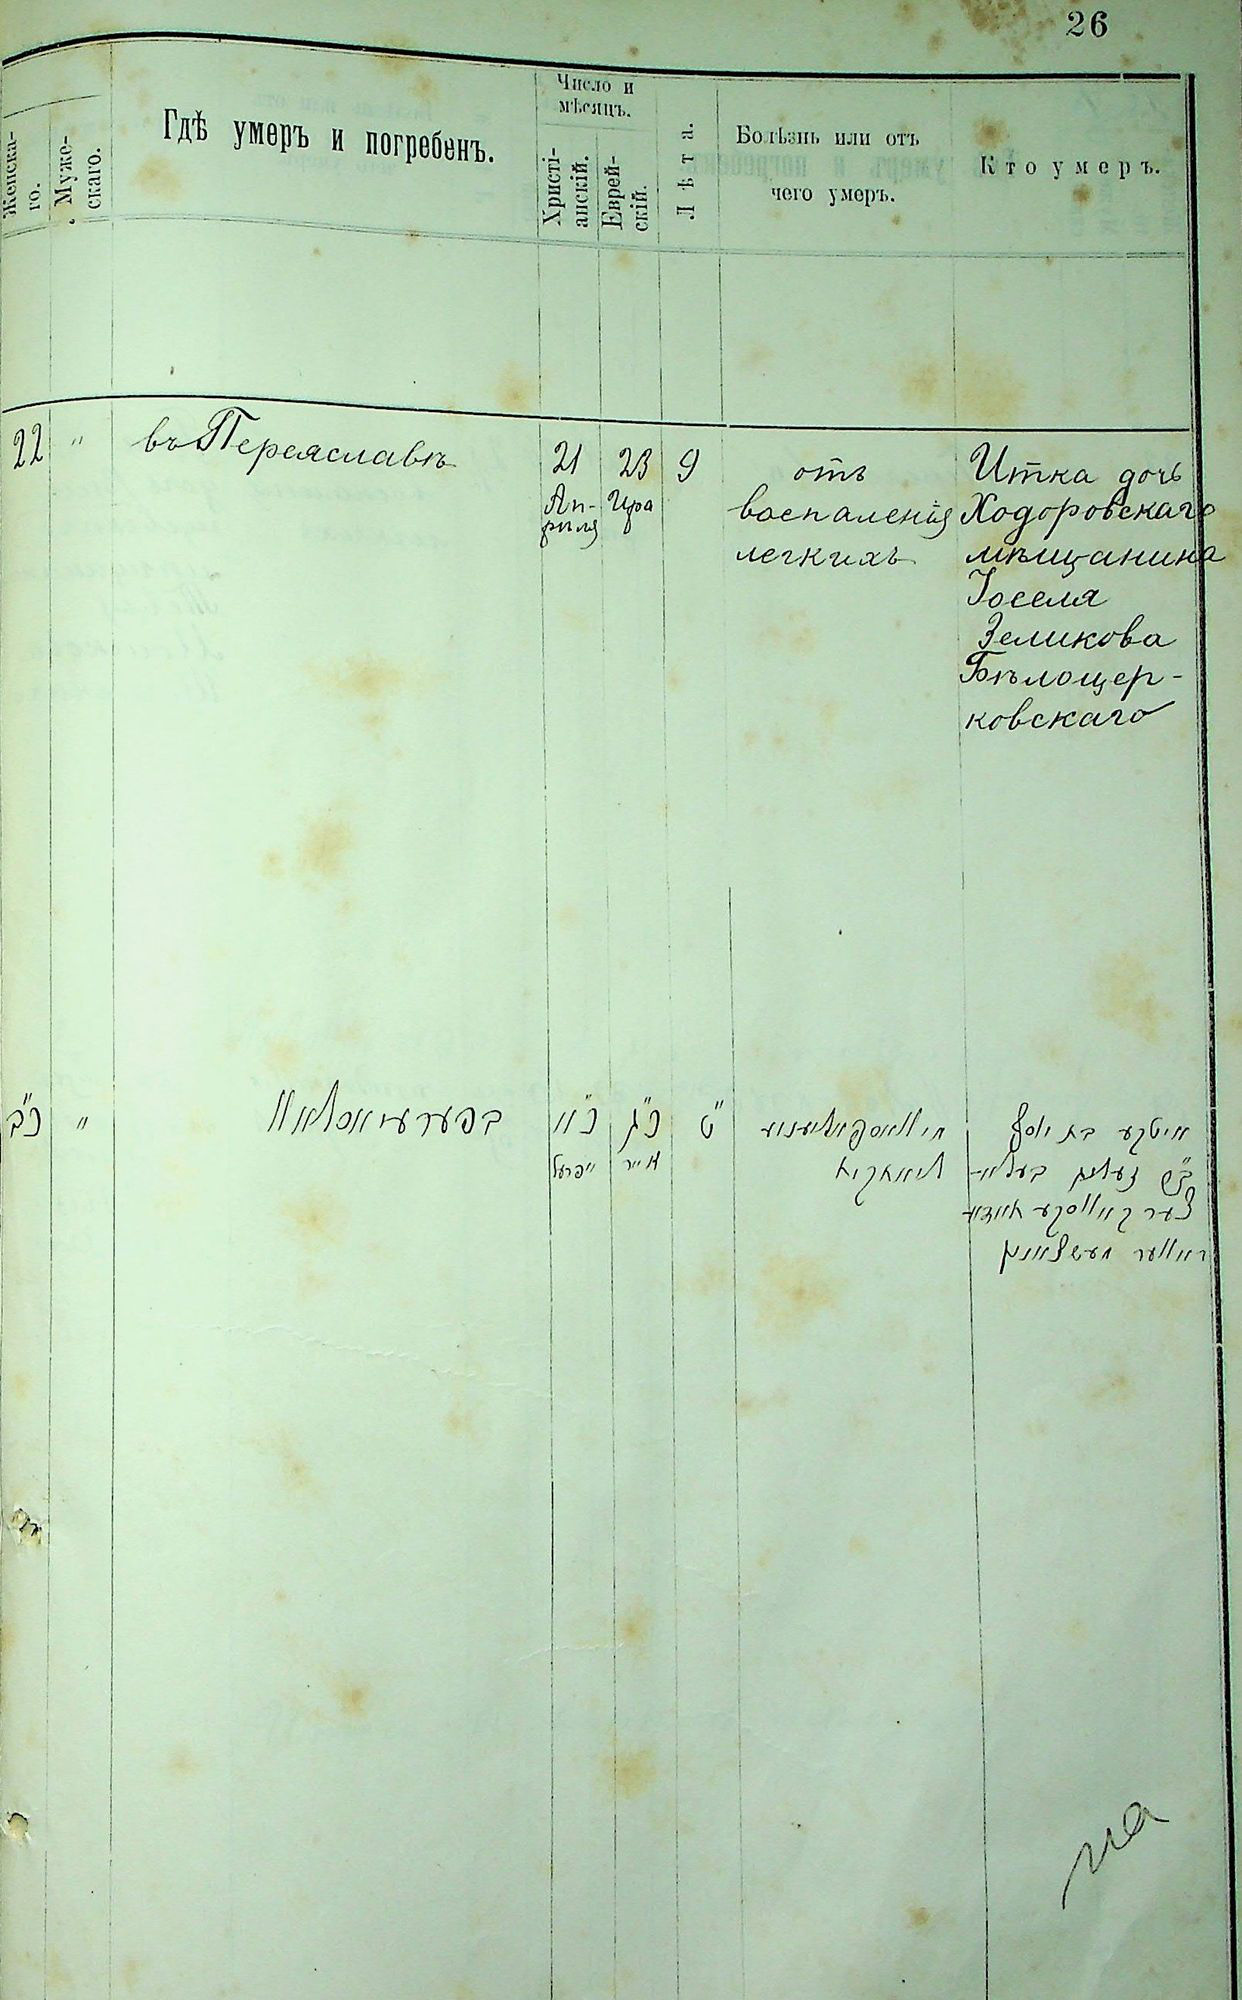 26
Женска-
го.
Муже-
скаго.
Гдѣ умеръ и погребенъ.
Число и
мѣсяцъ.
Христі-
анскій.
Еврей-
скій.
Лѣта.
Болѣзнь или отъ
чего умеръ.
Кто умеръ.
22 " въ Переяславѣ 21 23 9
Ап-
рѣля
Ира
отъ
воспаленія
легкихъ
Итка дочь
Ходоровскаго
мѣщанина
Іоселя
Зеликова
Бѣлоцер-
ковскаго
כ"ב " כ"א כ"ג ט"
אייר
איטקע בת יוסף